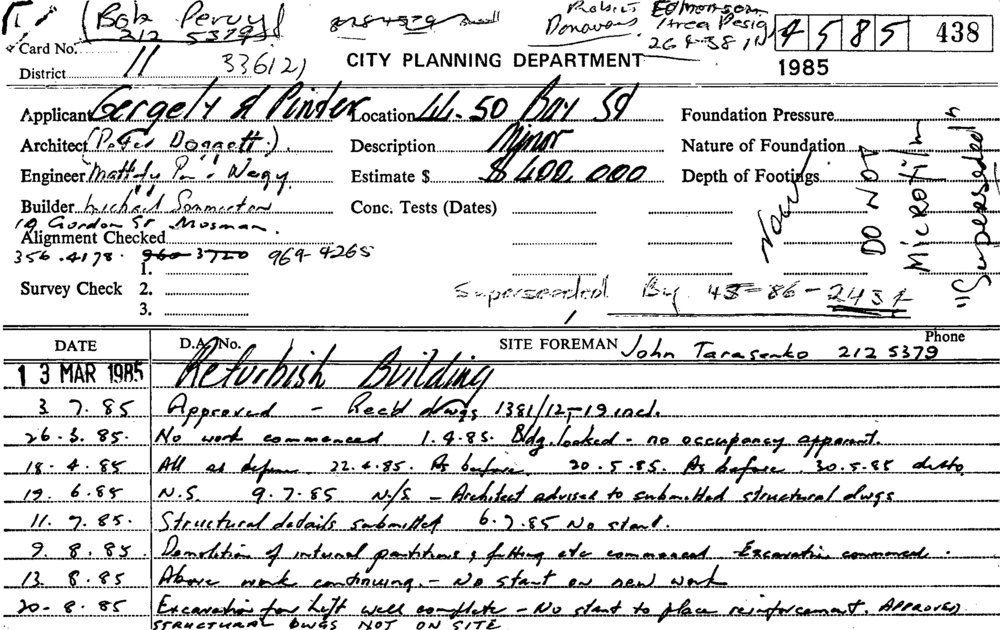 (Bob Pervy)
212 5379
Robert Edmonson
Donovans Area Desig
264 3811
4 5 8 5 438
1985
Card No.
District 11 336121
CITY PLANNING DEPARTMENT
Applicant Gergely & Pinter Location 44-50 Bay St Foundation Pressure
Architect (Peter Doggett) Description Minor Nature of Foundation
Engineer Estimate $ $400,000 Depth of Footings
Builder Michael Sommerton Conc. Tests (Dates)
19 Gordon St Mosman.
Alignment Checked
356.4178. 960 3720 969 4265
1.
Survey Check 2.
3.
DO NOT
Microfilm
"Superseded"
Superseeded By 45-86-2437
DATE D.A. No. SITE FOREMAN John Tarasenko 212 5379 Phone
13 MAR 1985 Refurbish Building
3.7.85 Approved - Rec'd dwgs 1381/12-19 incl.
26.3.85. No work commenced 1.4.85. Bldg. locked - no occupancy apparent.
18.4.85 All as before 22.4.85. As before. 20.5.85. As before. 30.5.85 ditto
19.6.85 N.S. 9.7.85 N/S - Architect advised to submitted structural dwgs
11.7.85. Structural details submitted 6.7.85 No start.
9.8.85. Demolition of internal partitions, fitting etc commenced - Excavation commenced.
13.8.85 Above work continuing. - No start on new work
20-8.85 Excavation for lift well complete - No start to place reinforcement. APPROVED
STRUCTURAL DWGS NOT ON SITE